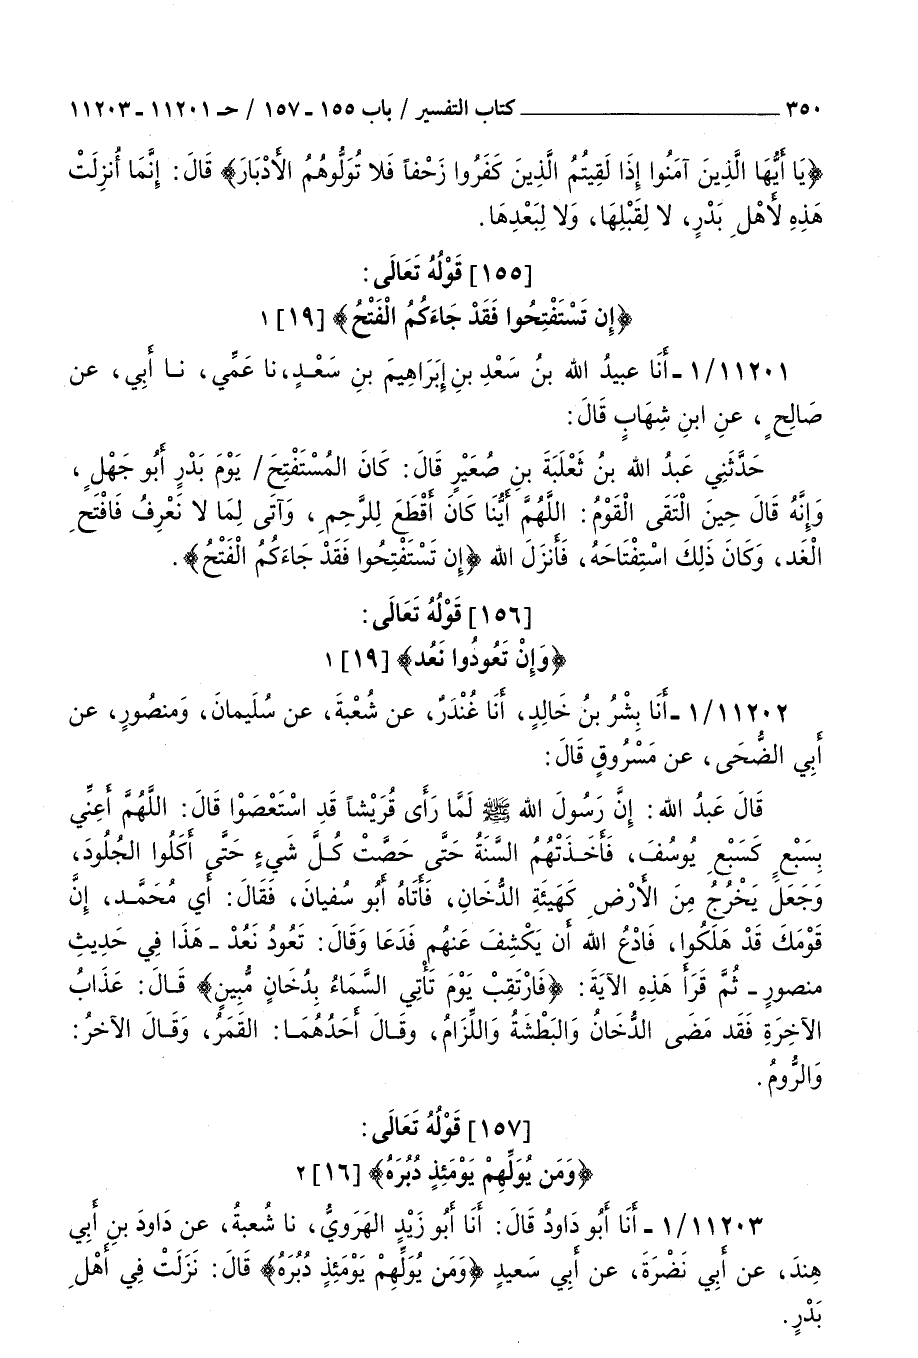 ٣٥٠ ــــــــــــــــــــــــ كتاب التفسير / باب ١٥٥ ـ ١٥٧ / حـ ١١٢٠١ ـ ١١٢٠٣
﴿يَا أَيُّهَا الَّذِينَ آمَنُوا إِذَا لَقِيتُمُ الَّذِينَ كَفَرُوا زَحْفاً فَلا تُوَلُّوهُمُ الأَدْبَارَ﴾ قَالَ: إِنَّمَا أُنزِلَتْ
هَذِهِ لأَهْلِ بَدْرٍ، لا لِقَبْلِهَا، وَلا لِبَعْدِهَا.
[١٥٥] قَوْلُهُ تَعَالَى:
﴿إِن تَسْتَفْتِحُوا فَقَدْ جَاءَكُمُ الْفَتْحُ﴾ [١٩] ١
١/١١٢٠١ ـ أَنَا عبيدُ الله بنُ سَعْدِ بنِ إِبَرَاهِيمَ بنِ سَعْدٍ، نا عَمِّي، نا أَبي، عن
صَالِحٍ، عنِ ابنِ شِهَابٍ قَالَ:
حَدَّثَنِي عَبدُ الله بنُ ثَعْلَبَةَ بنِ صُعَيْرٍ قَالَ: كَانَ المُسْتَفْتِحَ/ يَوْمَ بَدْرٍ أَبُو جَهْلٍ،
وَإِنَّهُ قَالَ حِينَ الْتَقَى الْقَوْمُ: اللَّهُمَّ أَيُّنَا كَانَ أَقْطَعَ لِلرَّحِمِ، وَآتَى لِمَا لا نَعْرِفُ فَافْتَحِ
الْغَد، وَكَانَ ذَلِكَ اسْتِفْتَاحَهُ، فَأَنزَلَ الله ﴿إِن تَسْتَفْتِحُوا فَقَدْ جَاءَكُمُ الْفَتْحُ﴾.
[١٥٦] قَوْلُهُ تَعَالَى:
﴿وَإِنْ تَعُودُوا نَعُد﴾ [١٩] ١
١/١١٢٠٢ ـ أَنَا بِشْرُ بنُ خَالِدٍ، أَنَا غُنْدَرٌ، عن شُعْبةَ، عن سُلَيمانَ، وَمنصُورٍ، عن
أَبِي الضُّحَى، عن مَسْرُوقٍ قَالَ:
قَالَ عَبدُ الله: إِنَّ رَسُولَ الله ﷺ لَمَّا رَأَى قُرَيْشاً قَدِ اسْتَعْصَوْا قَالَ: اللَّهُمَّ أَعِنِّي
بِسَبْعٍ كَسَبْعِ يُوسُفَ، فَأَخَذَتْهُمُ السَّنَةُ حَتَّى حَصَّتْ كُلَّ شَيءٍ حَتَّى أَكَلُوا الجُلُودَ،
وَجَعَلَ يَخْرُجُ مِنَ الأَرْضِ كَهَيئَةِ الدُّخَانِ، فَأَتَاهُ أَبُو سُفيانَ، فَقَالَ: أَي مُحَمَّد، إِنَّ
قَوْمَكَ قَدْ هَلَكُوا، فَادْعُ الله أَن يَكْشِفَ عَنهُم فَدَعَا وَقَالَ: تَعُودُ نَعُدْ ـ هَذَا فِي حَدِيثِ
منصورٍ ـ ثُمَّ قَرَأَ هَذِهِ الآيَةَ: ﴿فَارْتَقِبْ يَوْمَ تَأْتِي السَّمَاءُ بِدُخَانٍ مُّبِينٍ﴾ قَالَ: عَذَابُ
الآخِرَةِ فَقَد مَضَى الدُّخَانُ وَالبَطْشَةُ وَاللِّزَامُ، وقَالَ أَحَدُهُمَا: القَمَرُ، وَقَالَ الآخرُ:
وَالرُّومُ.
[١٥٧] قَوْلُهُ تَعَالَى:
﴿وَمَن يُوَلِّهِمْ يَوْمَئِذٍ دُبُرَهُ﴾ [١٦] ٢
١/١١٢٠٣ ـ أَنَا أَبُو دَاودُ قَالَ: أَنَا أَبُو زَيْدٍ الهَرَوِيُّ، نا شُعبةُ، عن دَاودَ بنِ أَبي
هِندَ، عن أَبي نَضْرَةَ، عن أَبي سَعيدٍ ﴿وَمَن يُوَلِّهِمْ يَوْمَئِذٍ دُبُرَهُ﴾ قَالَ: نَزَلَتْ فِي أَهْلِ
بَدْرٍ.